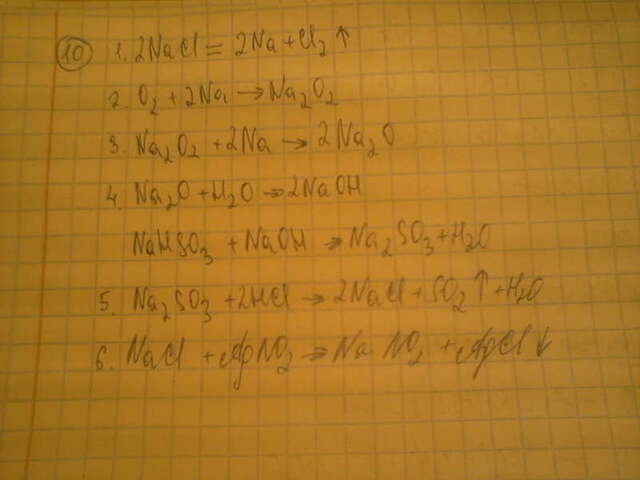 10 1. 2NaCl = 2Na + Cl₂ ↑
2. O₂ + 2Na → Na₂O₂
3. Na₂O₂ + 2Na → 2Na₂O
4. Na₂O + H₂O → 2NaOH
NaHSO₃ + NaOH → Na₂SO₃ + H₂O
5. Na₂SO₃ + 2HCl → 2NaCl + SO₂ ↑ + H₂O
6. NaCl + AgNO₂ → NaNO₂ + AgCl ↓